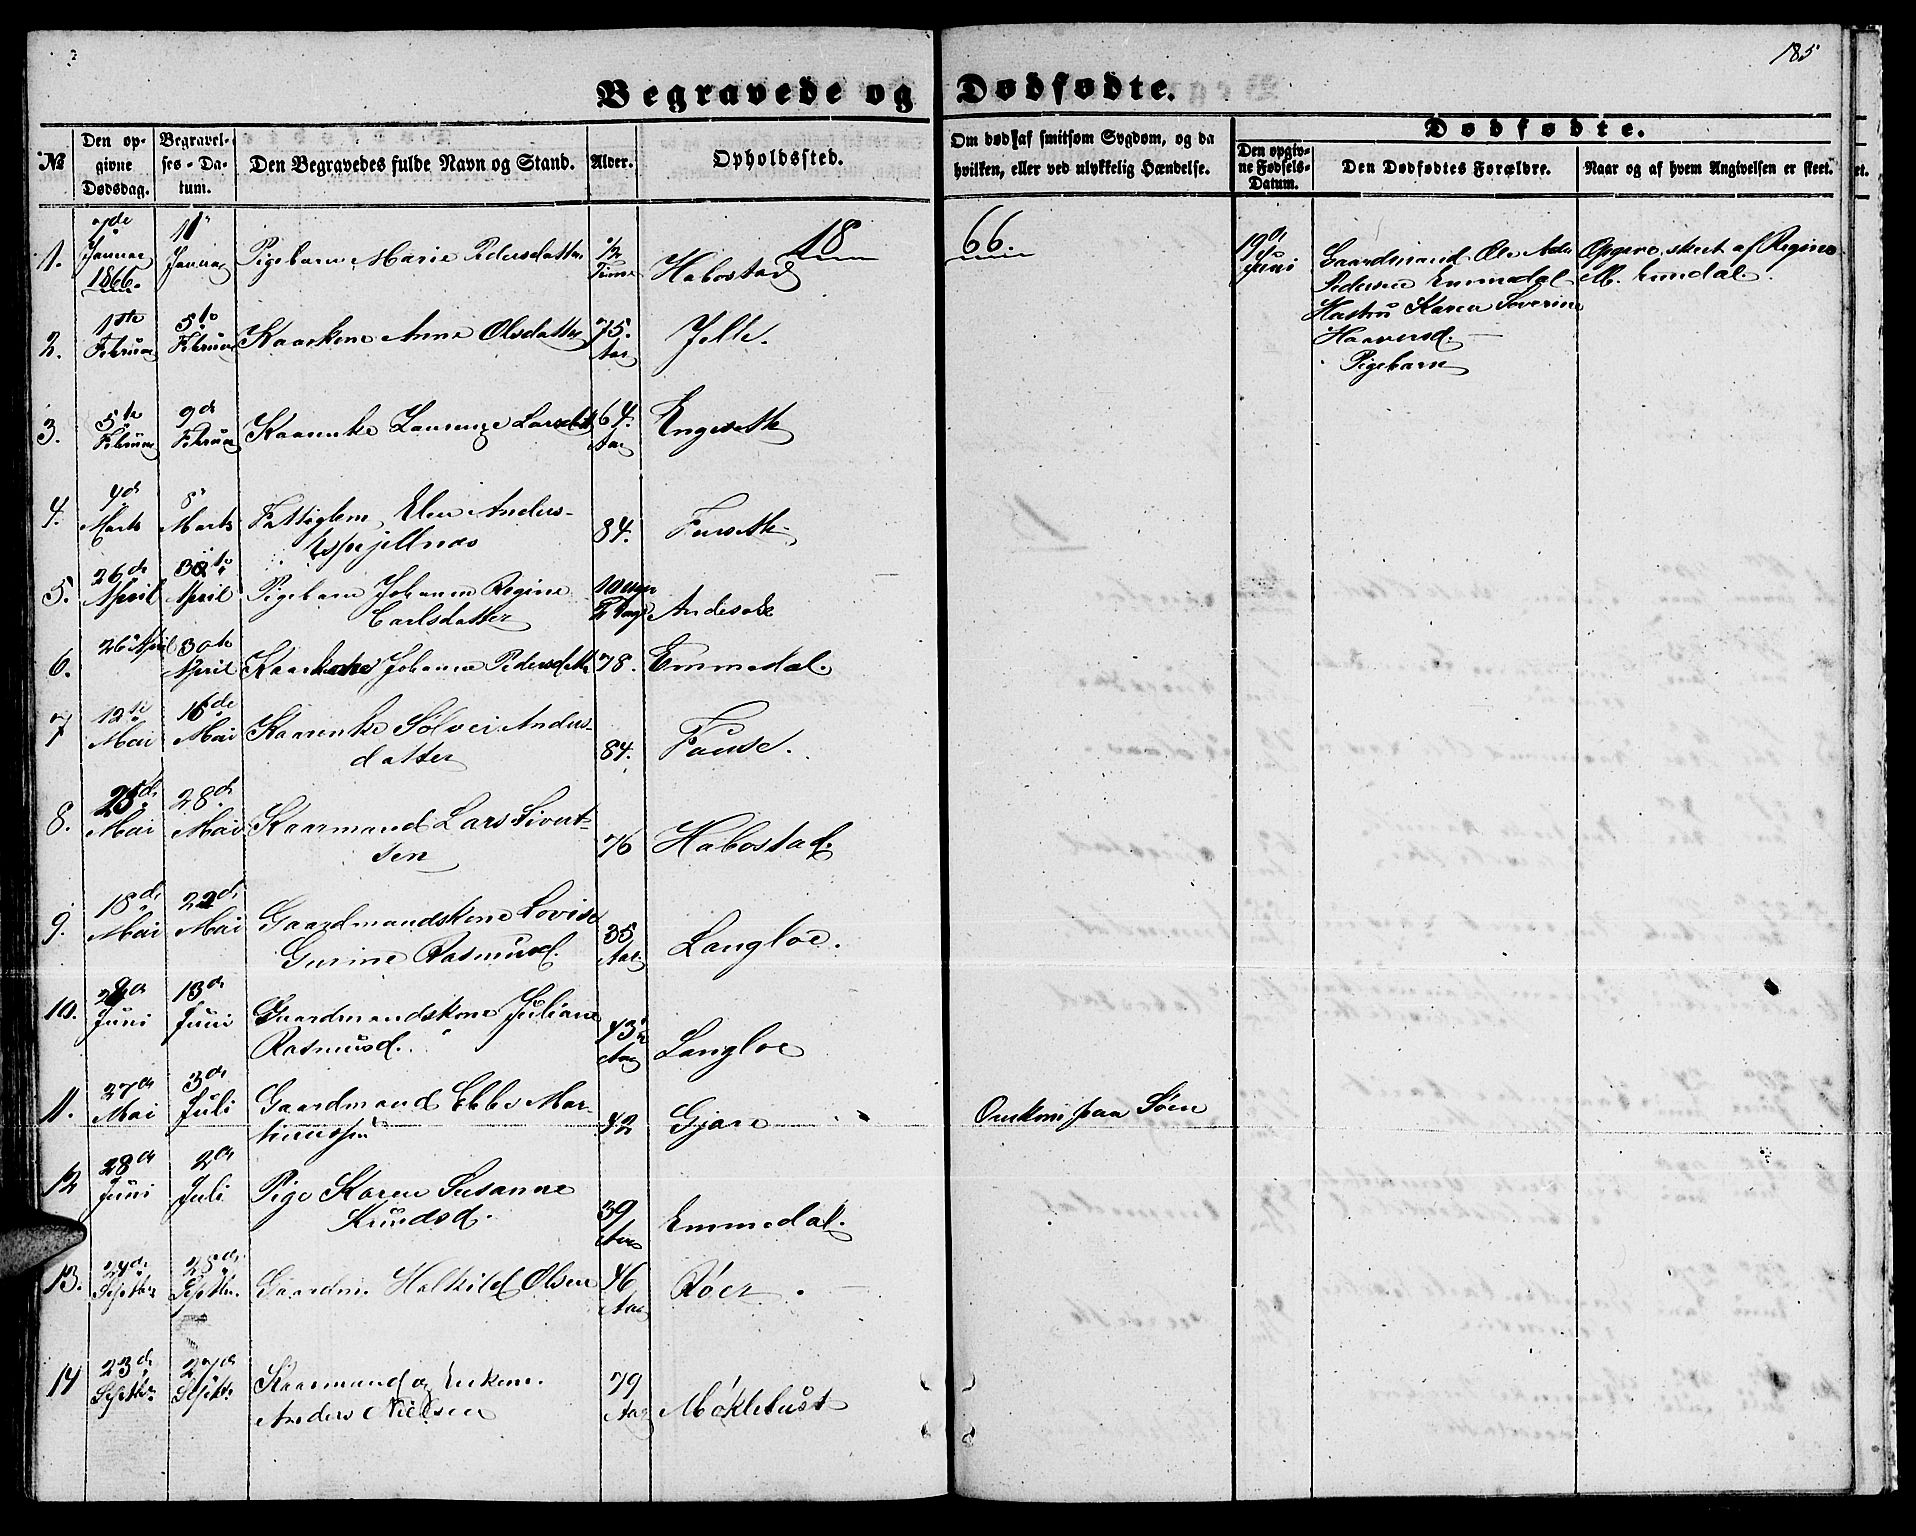 185
Begravede og Dødfødte.
№
Den op-
givne
Dødsdag.
Begravel-
ses-Da-
tum.
Den Begravedes fulde Navn og Stand.
Alder.
Opholdssted.
Om død af smitsom Sygdom, og da
hvilken, eller ved ulykkelig Hændelse.
Dødfødte.
Den opgiv-
ne Fødsels-
Datum.
Den Dødfødtes Forældre.
Naar og af hvem Angivelsen er skeet.
1866.
1. 7de Januar 1866. 11 Januar Pigebarn Marie Pedersdatter 1/2 Time Habostad
19de Juni
Gaardmand Ole
Pedersen Emmedal
Hustru Karen Severine
Haaversd.
Pigebarn
Opgivo. skeet af Regine
M. Emdal.
2. 1ste Februar 5te Februar Kaarkone Anne Olsdatter 75. Aar Jelle.
3. 5te Februar 9de Februar Kaarenke Laurenze Larsdtr 64. Aar Engeseth
4. 4de Marts 8 Marts Fattiglem Elen Anders-
Espejellnæs 84. Furseth
5. 26de April 30te April Pigebarn Johanne Regine
Carlsdatter 10 Uger 2 Dage
6. 26 April 30te April Kaarkone Johanne Pedersdtter 78. Emmedal.
7 12te Mai 16de Mai Kaarenke Sølvei Anders-
datter 84. Fause.
8. 25de Mai 28de Mai Kaarmand Lars Sivert-
sen 76 Habostad.
9. 18de Mai 22de Mai Gaardmandskone Lovise
Gurine Rasmusd. 35 Aar Langloe.
10. Juni 13de Juni Gaardmandskone Juliane
Rasmusd. 43 Aar Langloe
11. 27de Mai 3de Juli Gaardmand Ebbe Mar-
tinussen 42 Gjære Omkom paa Søen
12 28de Juni 2de Juli Pige Karen Susanne
Knudsd. 39 Aar Emmedal.
13. Septbr 25de Septbr. Gaardm. Halkild Olsen 46 Aar Røer.
14 23de Septbr. 27de Septbr. Kaarmand og Enkem.
Anders Nielsen 79 Aar Møklebust